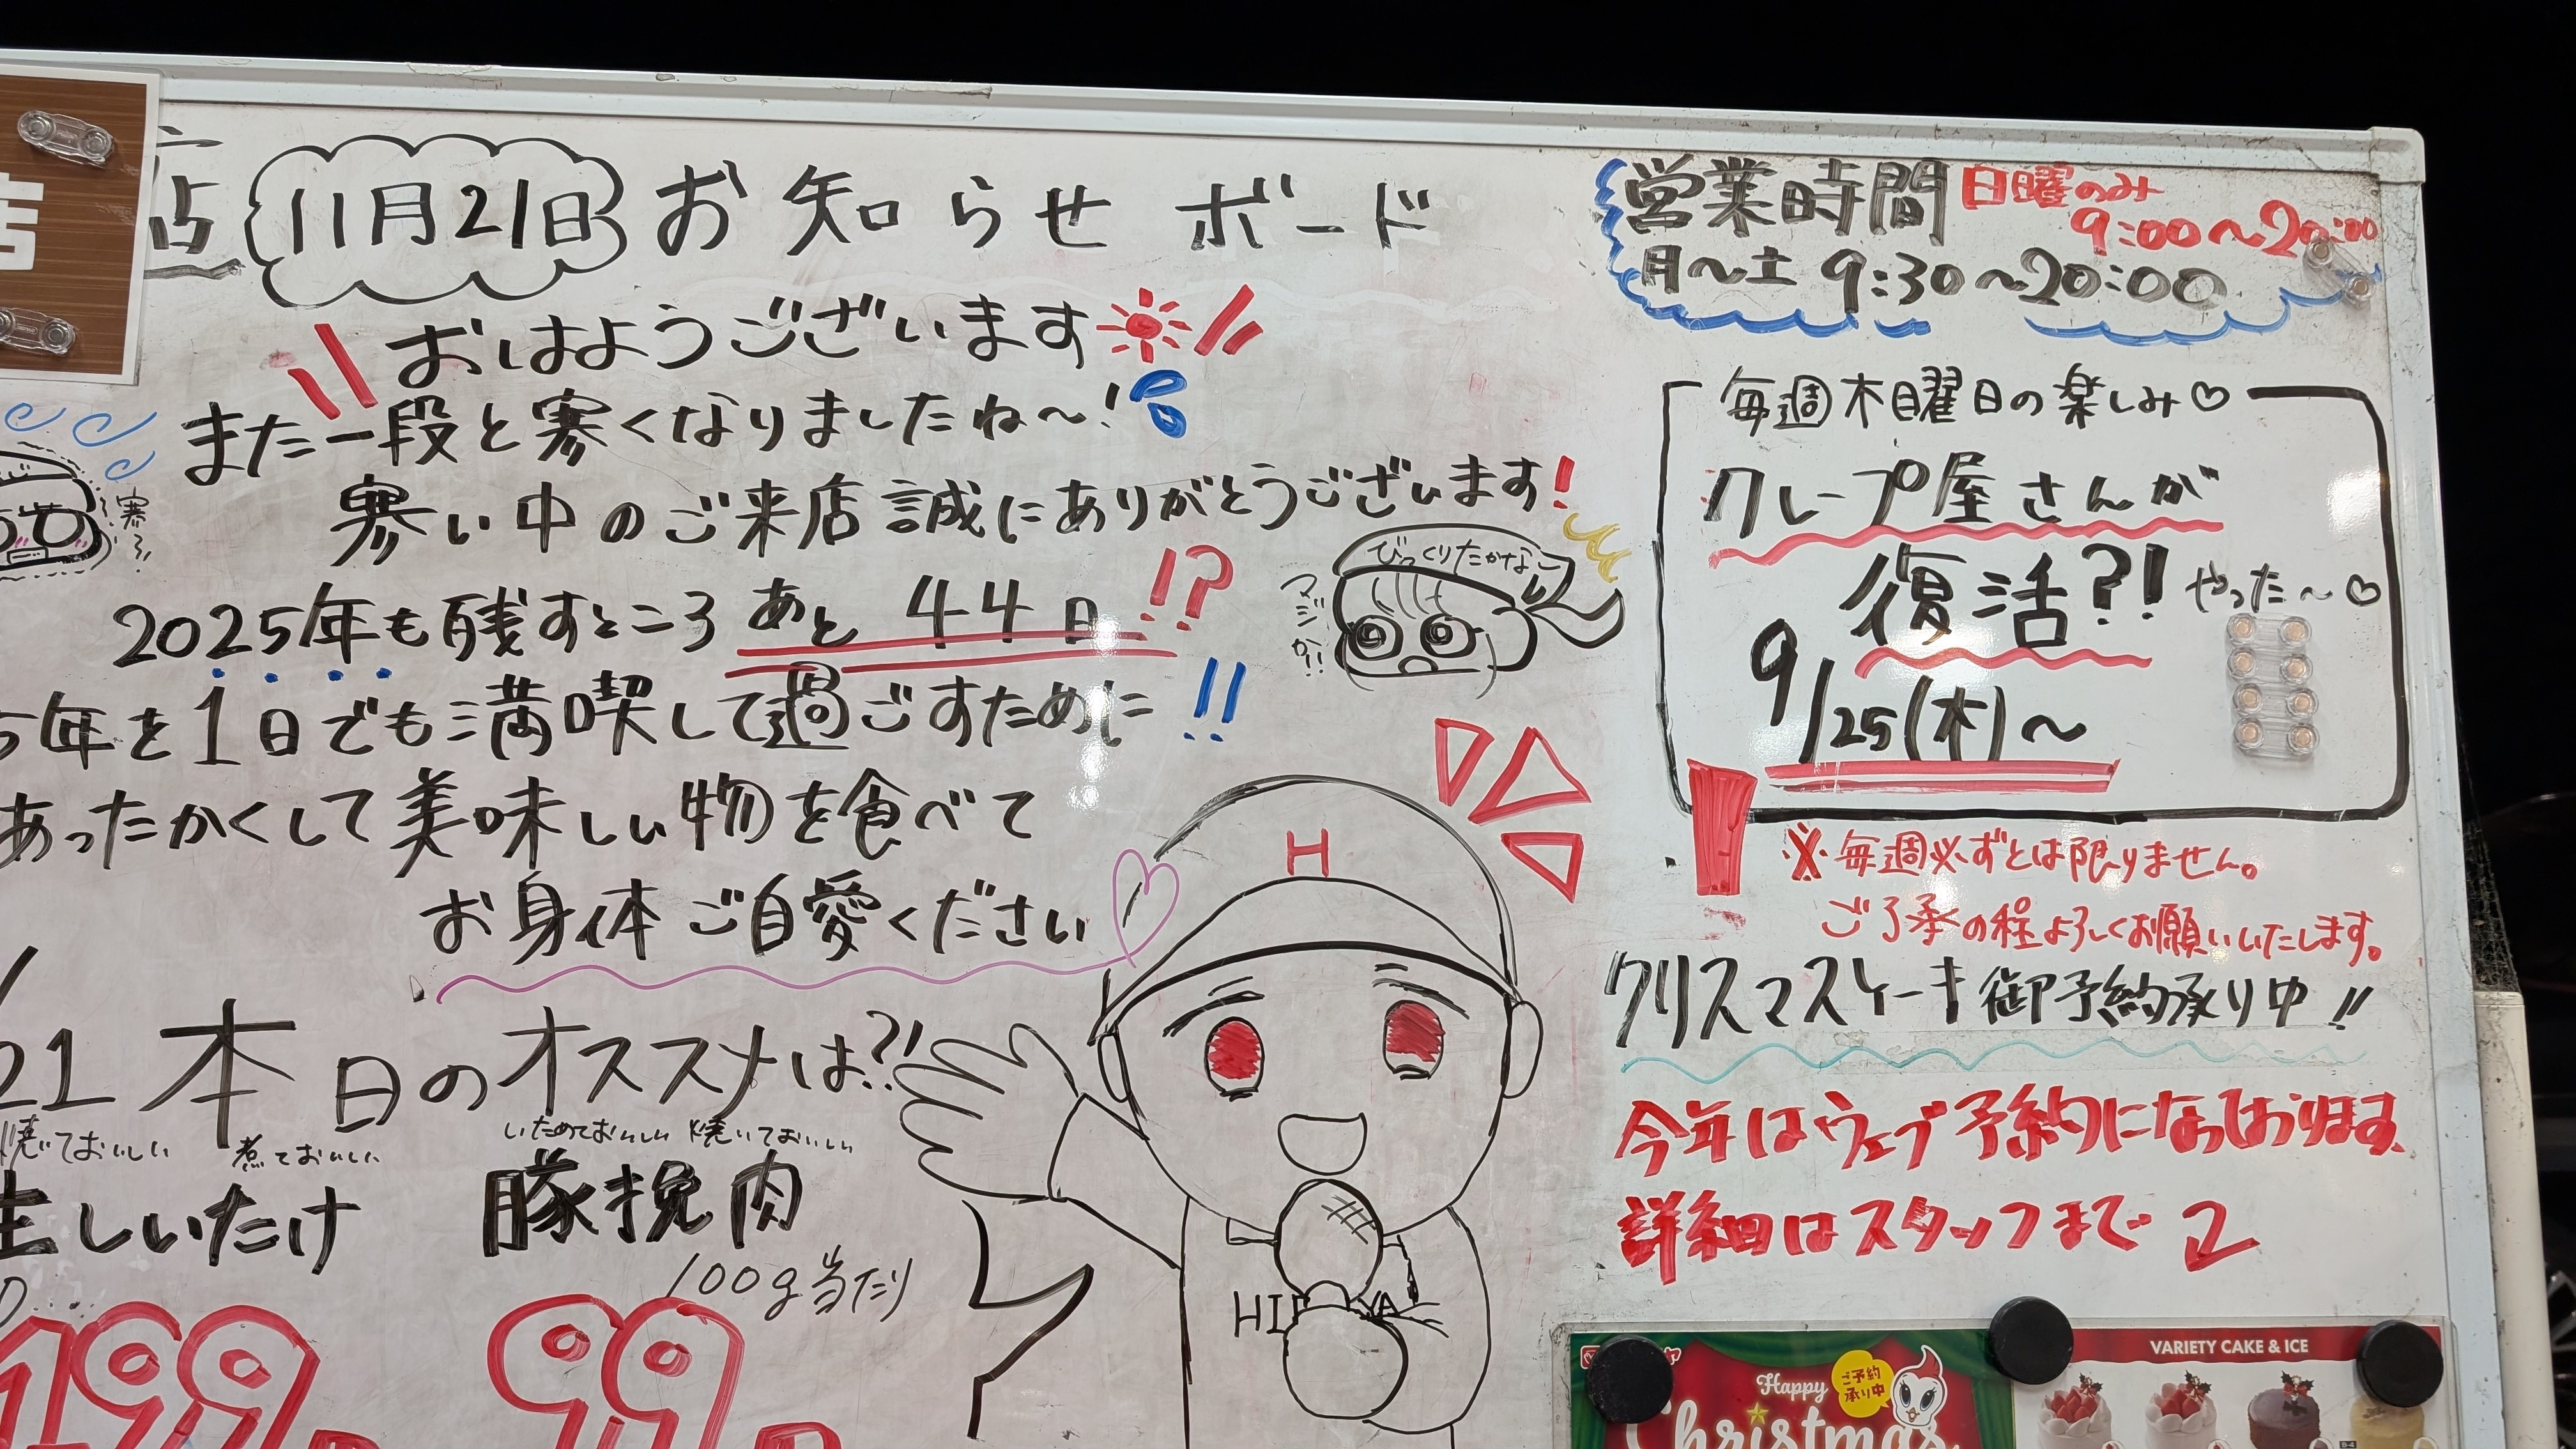 店
店
11月21日
お知らせボード
おはようございます
また一段と寒くなりましたね〜!
寒い中のご来店誠にありがとうございます!
寒ろ
2025年も残すところあと44日!?
びっくりたかなこ
マジか!!
5年を1日でも満喫して過ごすために!!
あったかくして美味しい物を食べて
お身体ご自愛ください
21 本日のオススメは?!
焼いておいしい 煮ておいしい
生しいたけ
199
いためておいしい 焼いておいしい
豚挽肉
100g当たり
99
H
営業時間 日曜のみ
9:00〜20:00
月〜土 9:30〜20:00
毎週木曜日の楽しみ♡
クレープ屋さんが
復活?! やった〜♡
9/25(木)〜
※毎週必ずとは限りません。
ご了承の程よろしくお願いいたします。
クリスマスケーキ御予約承り中!!
今年はウェブ予約になっております。
詳細はスタッフまで
Happy
Christmas
ご予約
承り中
VARIETY CAKE & ICE